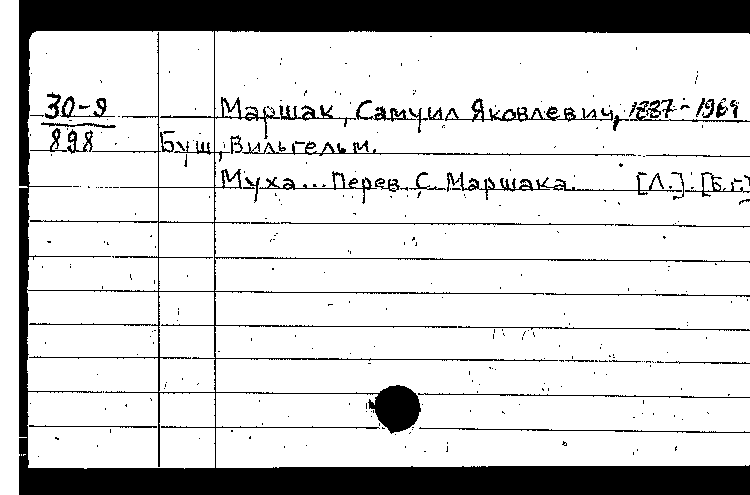 30-9
898
Маршак, Самуил Яковлевич, 1887-1964
Буш, Вильгельм.
Муха... Перев. С. Маршака. [Л.]. [Б.г.]